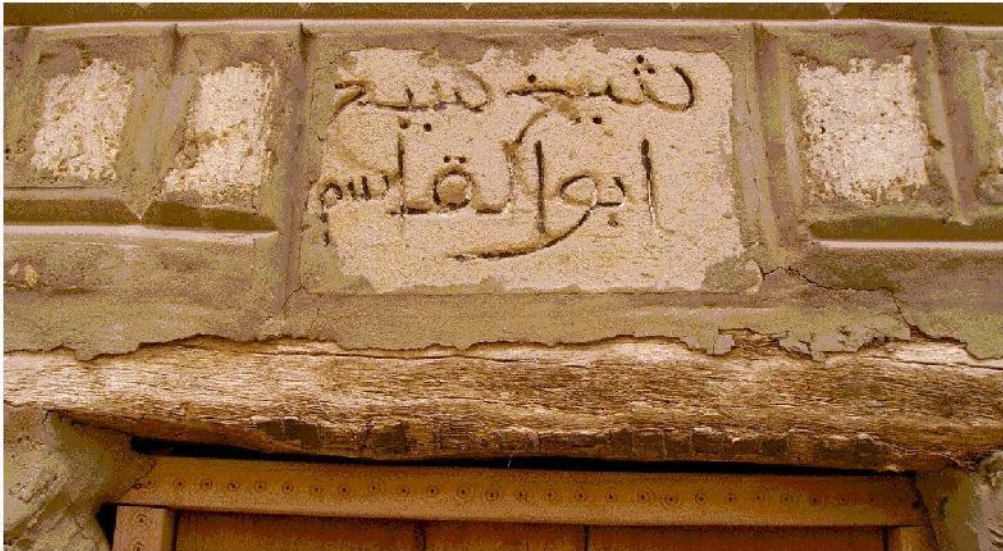 شيخ
ابو القاسم